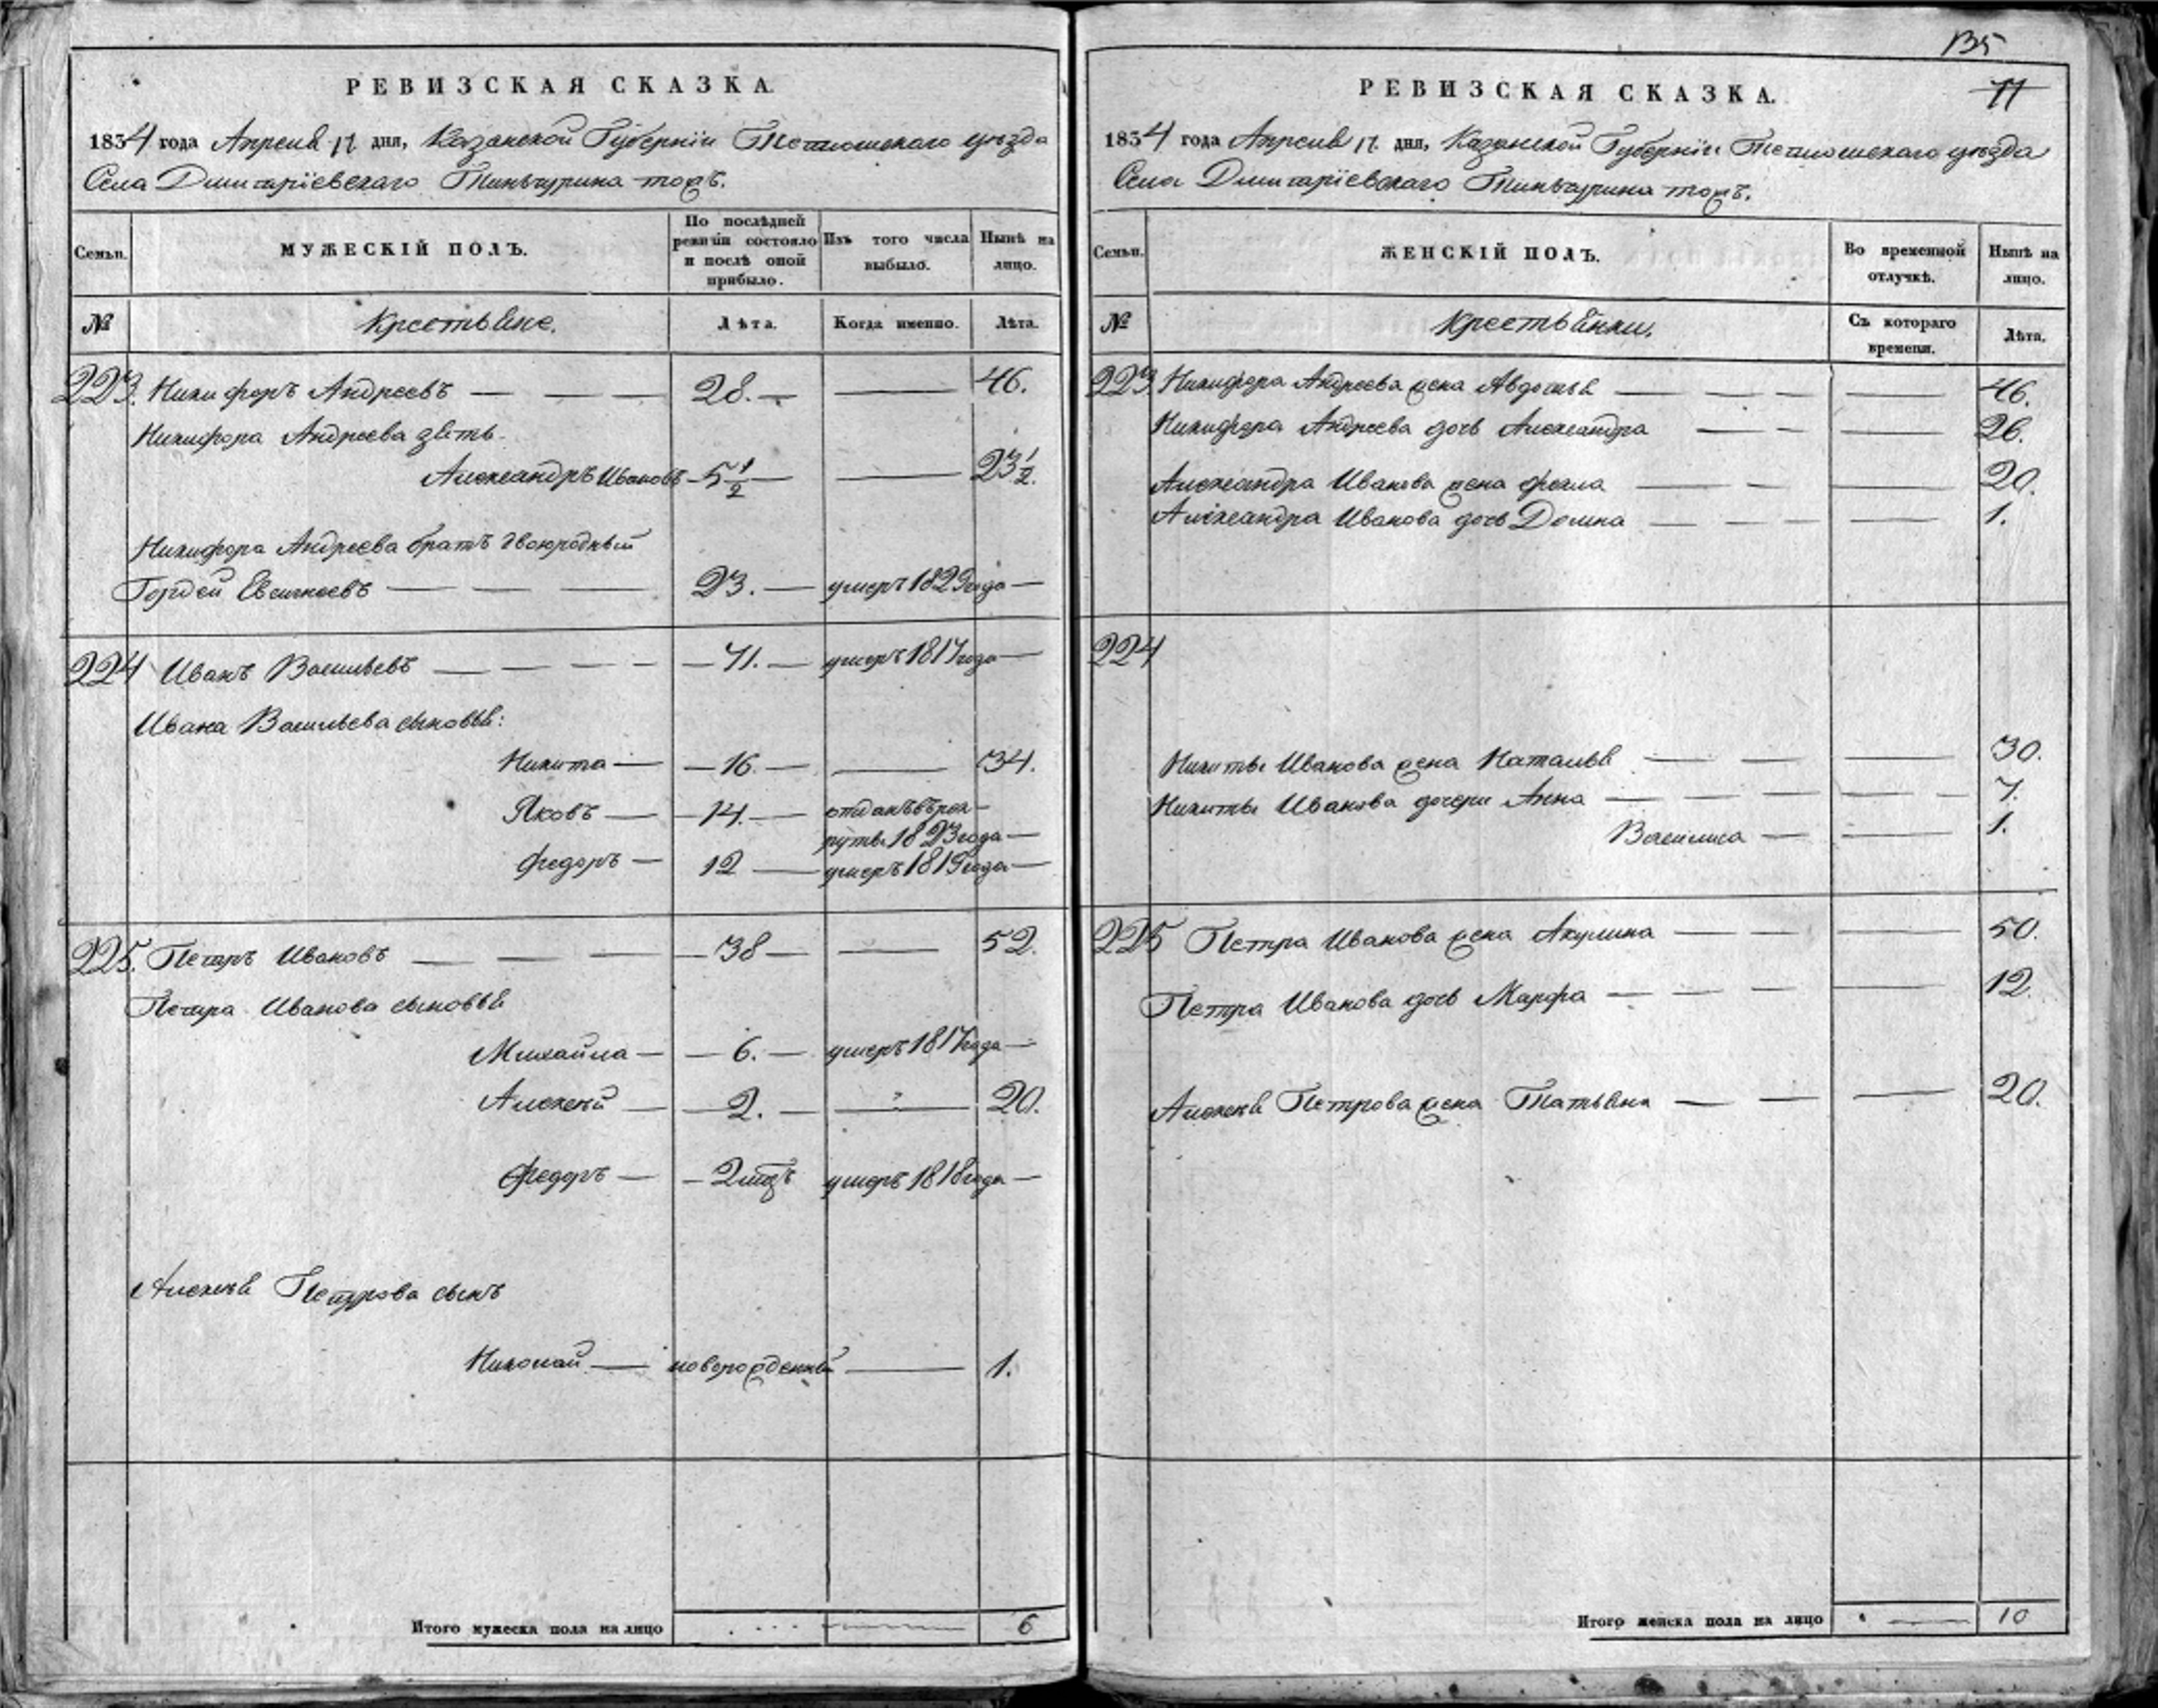 РЕВИЗСКАЯ СКАЗКА.
1834 года Апреля 17 дня, Казанской Губернiи Тетюшскаго уѣзда
Села Дмитрiевскаго Тиньчурина тожъ.
Семьи.
МУЖЕСКIЙ ПОЛЪ.
По послѣдней ревизiи состояло и послѣ оной прибыло.
Изъ того числа выбыло.
Нынѣ на лицо.
№
Крестьяне.
Лѣта.
Когда именно.
Лѣта.
223. Никифоръ Андреевъ — 28. — — 46.
Никифора Андреева зять
Александръ Ивановъ — 5 1/2 — — 23 1/2.
Никифора Андреева братъ двоюродный
Гордей Евсигнеевъ — 23. — умеръ 1829 года —
224 Иванъ Васильевъ — 71. — умеръ 1817 года —
Ивана Васильева сыновья:
Никита — 16. — — 34.
Яковъ — 14. — отданъ въ рек-
руты 1823 года —
Федоръ — 12 — умеръ 1819 года —
225. Петръ Ивановъ — 38 — — 52.
Петра Иванова сыновья
Михайла — 6. — умеръ 1817 года —
Алексей — 2. — — 20.
Федоръ — 2 мцъ умеръ 1818 года —
Алексея Петрова сынъ
Николай — новорожденный — 1.
Итого мужеска пола на лицо 6
135
11
РЕВИЗСКАЯ СКАЗКА.
1834 года Апреля 17. дня, Казанской Губернiи Тетюшскаго уѣзда
Села Дмитрiевскаго Тиньчурина тожъ.
Семьи.
ЖЕНСКIЙ ПОЛЪ.
Во временной отлучкѣ.
Нынѣ на лицо.
№
Крестьянки.
Съ котораго времени.
Лѣта.
223 Никифора Андреева жена Авдотья — — 46.
Никифора Андреева дочь Александра — — 26.
Александра Иванова жена Фекла — — 20.
Александра Иванова дочь Домна — — 1.
224
Никиты Иванова жена Наталья — — 30.
Никиты Иванова дочери Анна — — 7.
Василиса — — 1.
225 Петра Иванова жена Акулина — — 50.
Петра Иванова дочь Марфа — — 12.
Алексея Петрова жена Татьяна — — 20.
Итого женска пола на лицо — 10